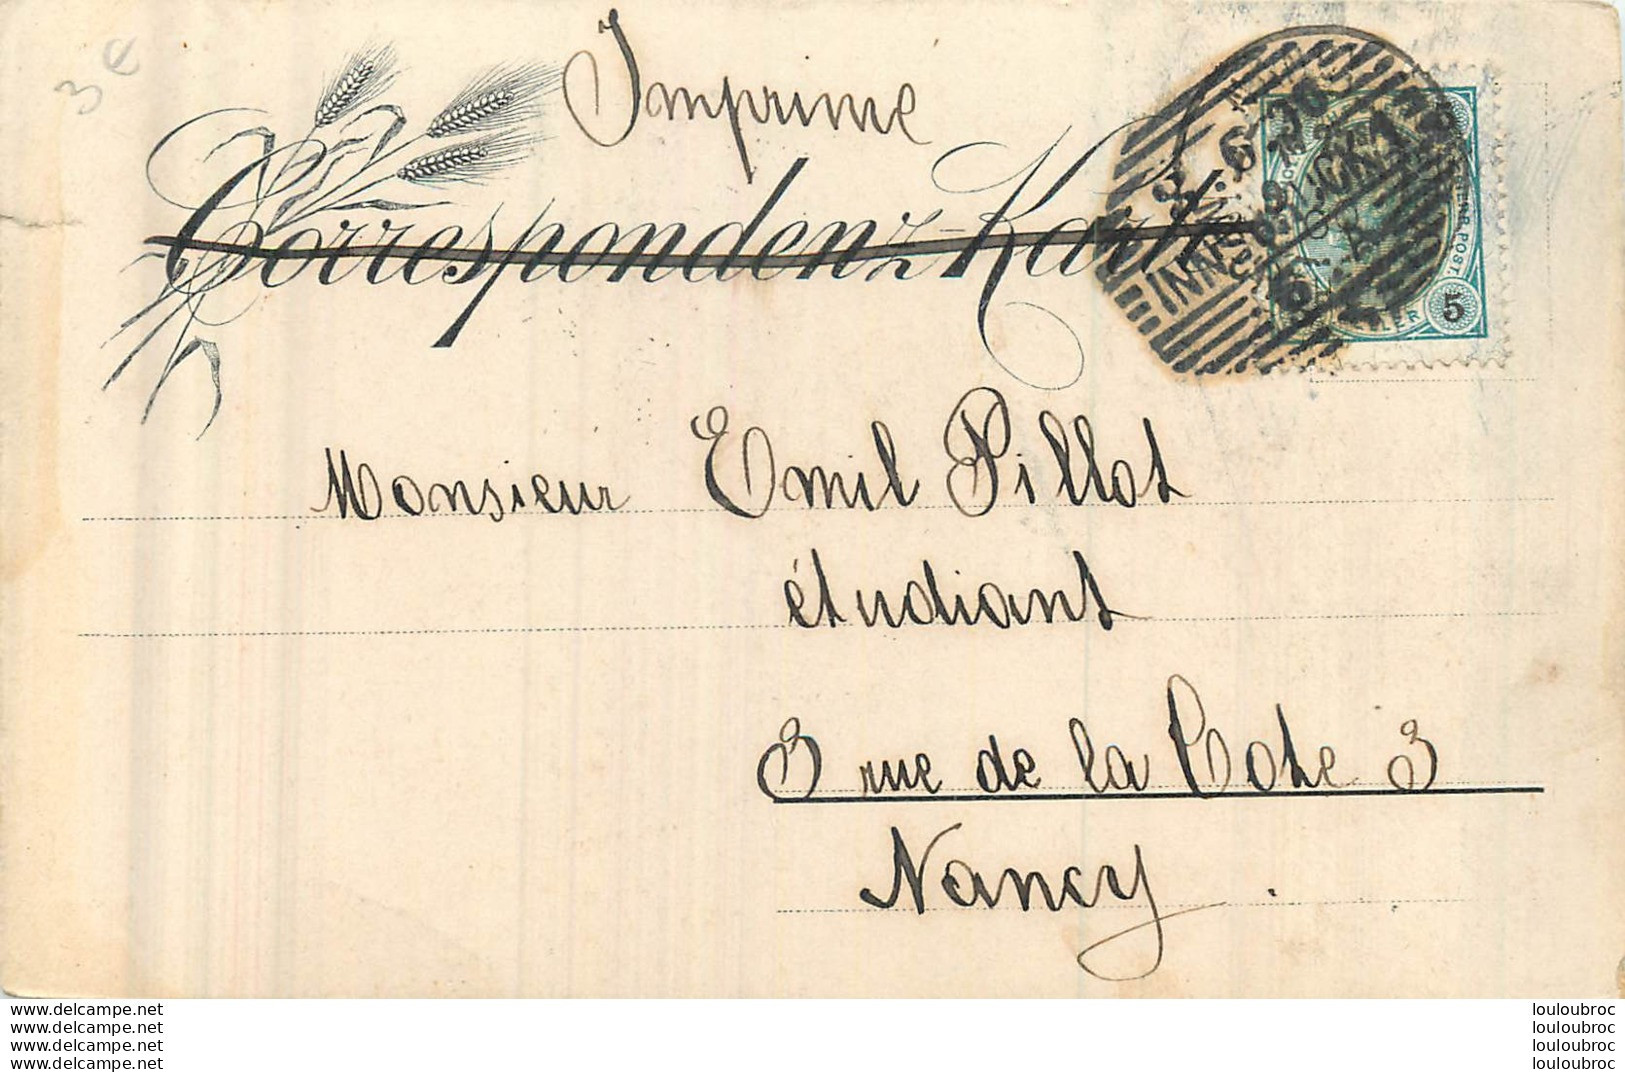 3 €
Imprime
Correspondenz-Karte
INNSBRUCK 1
5
Monsieur Emil Pillot
étudiant
3 rue de la Cote 3
Nancy.
www.delcampe.net
www.delcampe.net
www.delcampe.net
www.delcampe.net
louloubroc
louloubroc
louloubroc
louloubroc